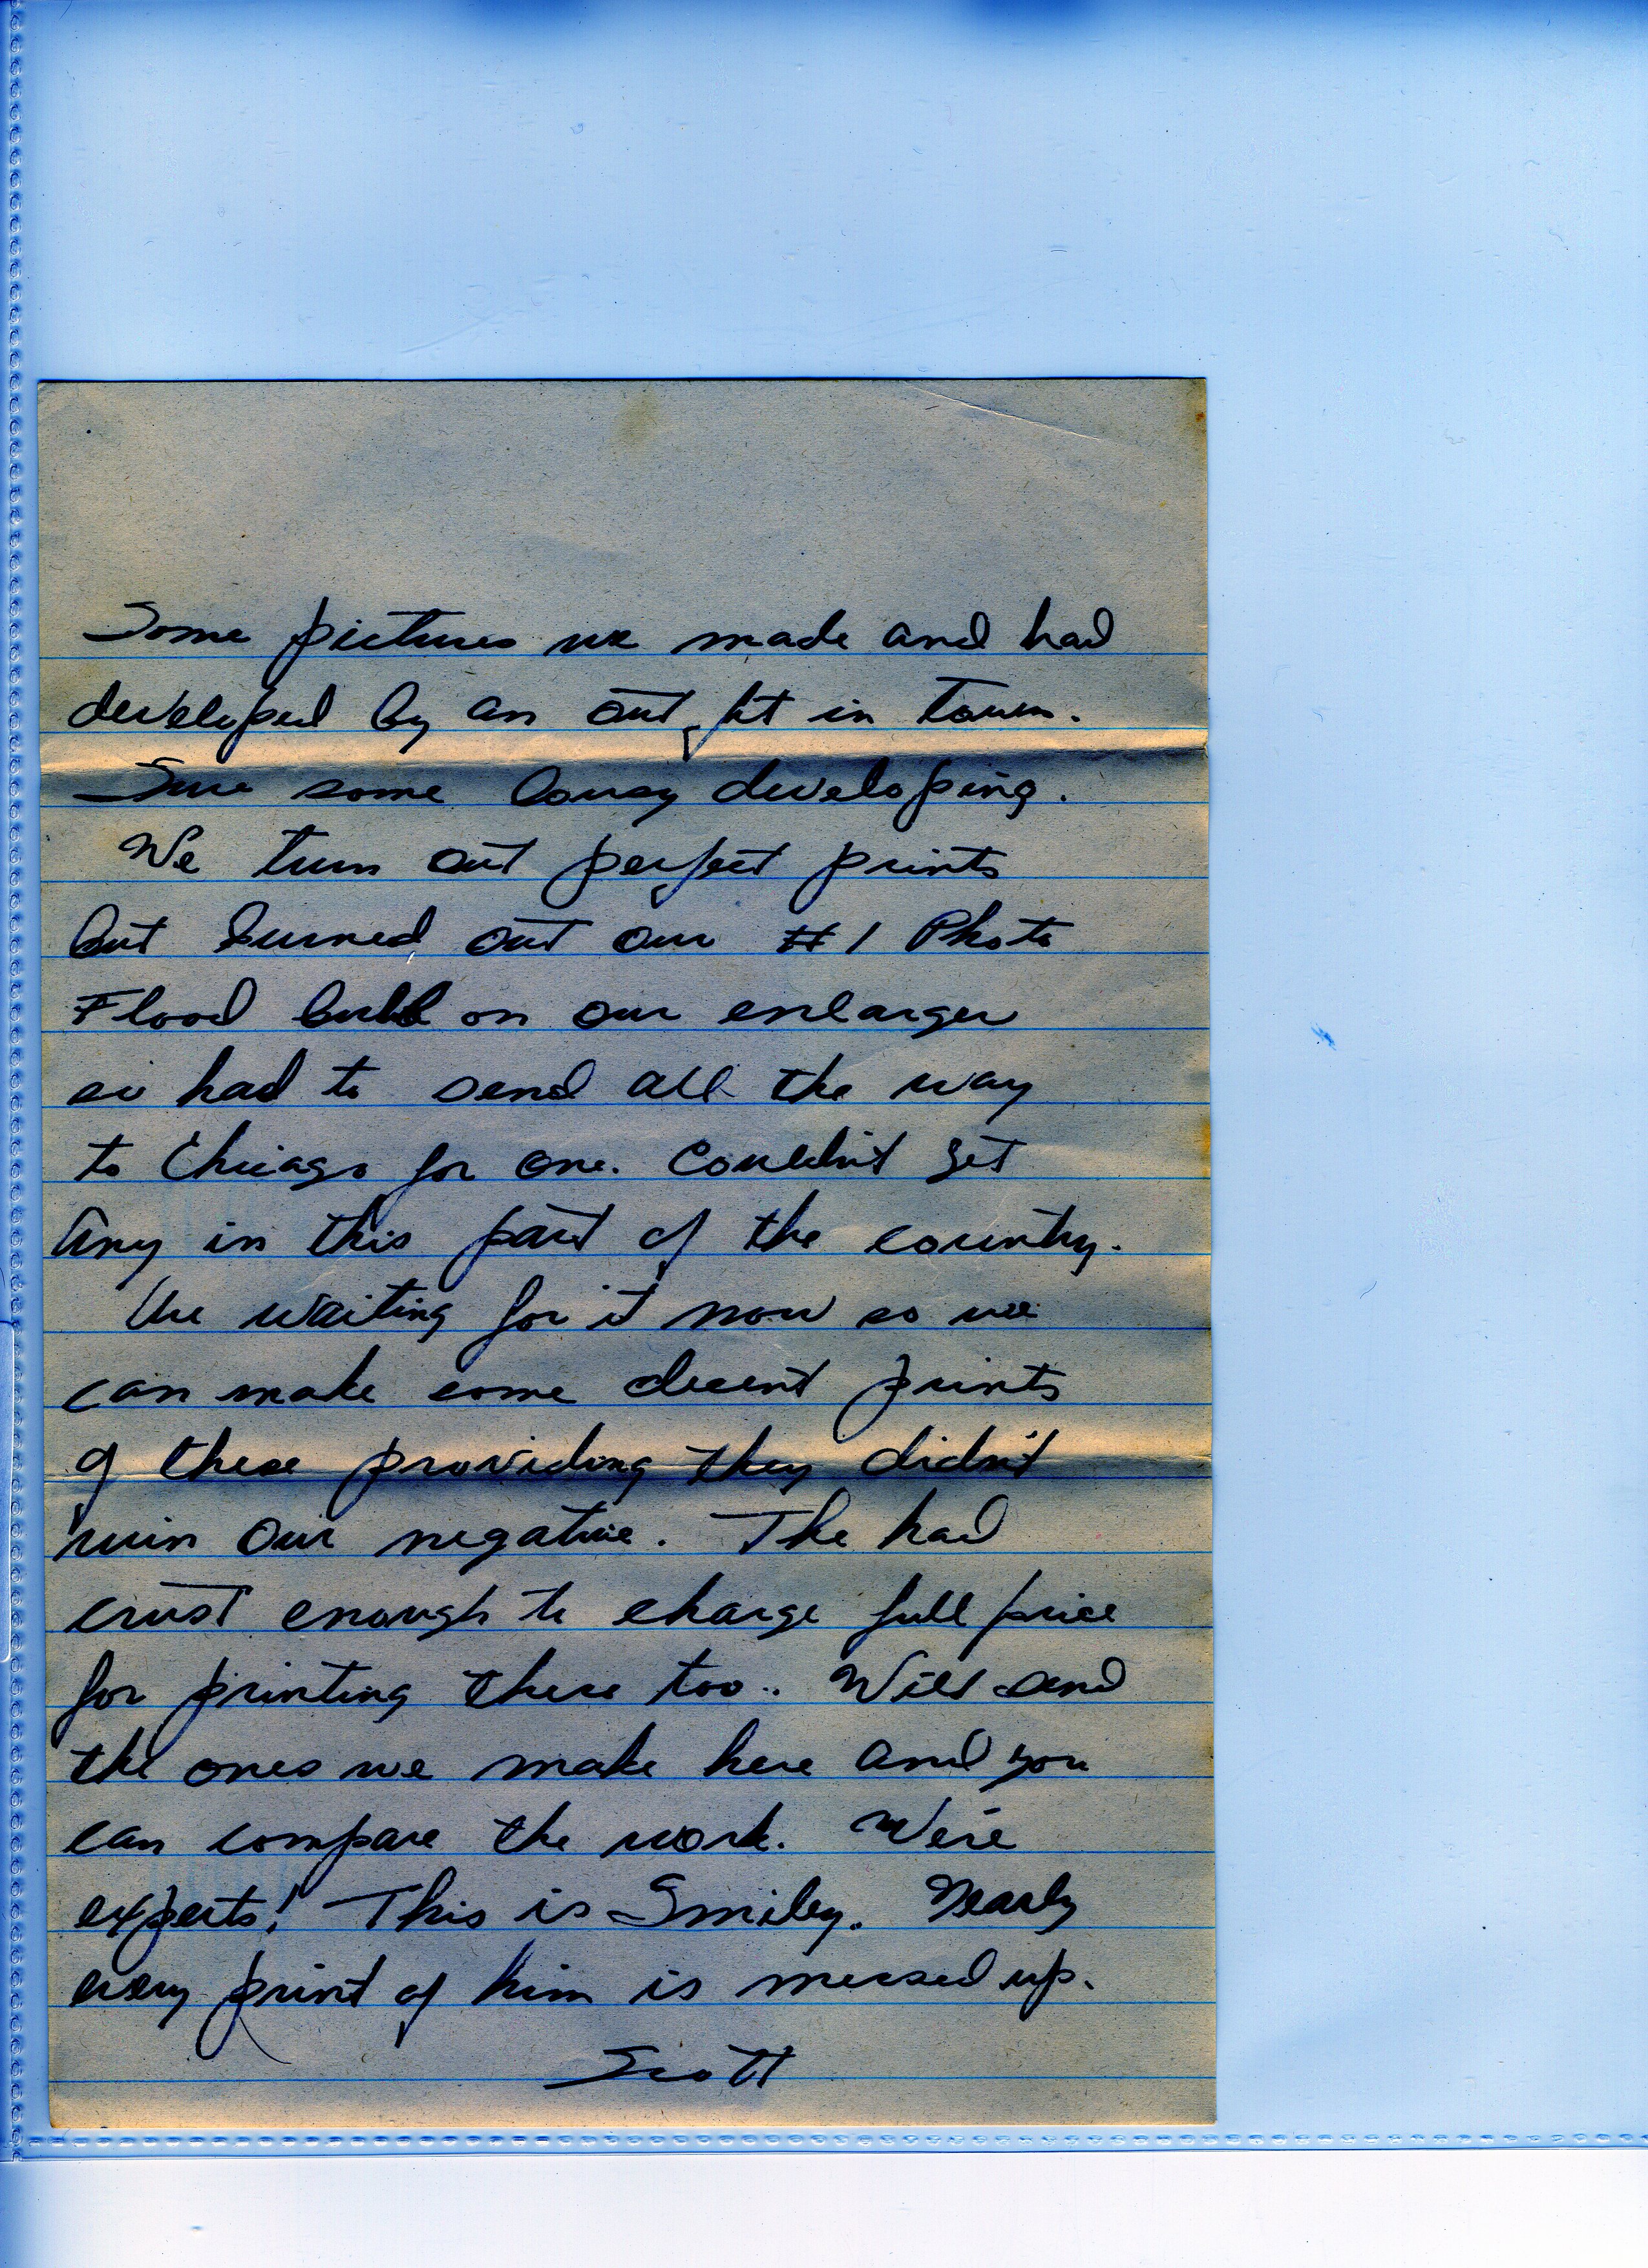 Some pictures we made and had
developed by an outfit in town.
Sure some lousy developing.
We turn out perfect prints
but burned out our #1 Photo
Flood bulb on our enlarger
so had to send all the way
to Chicago for one. Couldn't get
any in this part of the country.
We waiting for it now so we
can make some decent prints
of these providing they didn't
ruin our negative. The had
crust enough to charge full price
for printing these too.. Will send
the ones we make here and you
can compare the work. We're
experts! This is Smiley. Nearly
every print of him is messed up.
Scott